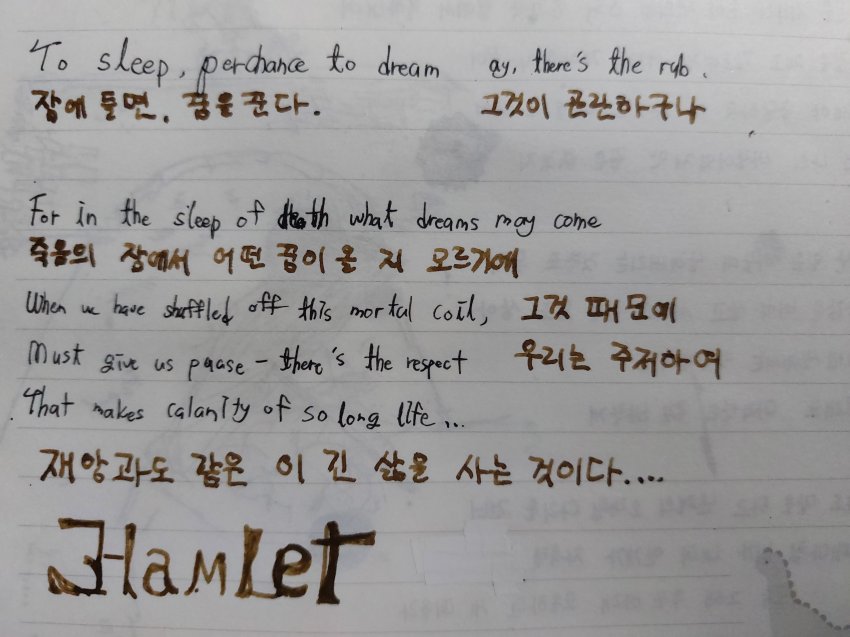 To sleep, perchance to dream ay, there's the rub.
잠에 들면, 꿈을 꾼다. 그것이 곤란하구나
For in the sleep of death what dreams may come
죽음의 잠에서 어떤 꿈이 올 지 모르기에
When we have shuffled off this mortal coil, 그것 때문에
Must give us pause - there's the respect 우리는 주저하여
That makes calamity of so long life...
재앙과도 같은 이 긴 삶을 사는 것이다....
Hamlet